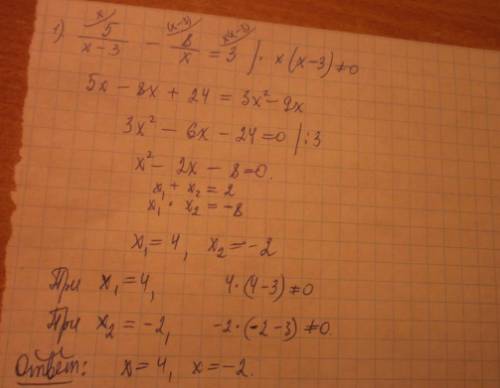 x (x-3) x(x-3)
1) 5/(x-3) - 8/x = 3 | · x(x-3) ≠ 0
5x - 8x + 24 = 3x² - 9x
3x² - 6x - 24 = 0 | :3
x² - 2x - 8 = 0.
x₁ + x₂ = 2
x₁ · x₂ = -8
x₁ = 4, x₂ = -2
При x₁ = 4, 4·(4-3) ≠ 0
При x₂ = -2, -2·(-2-3) ≠ 0.
Ответ: x = 4, x = -2.